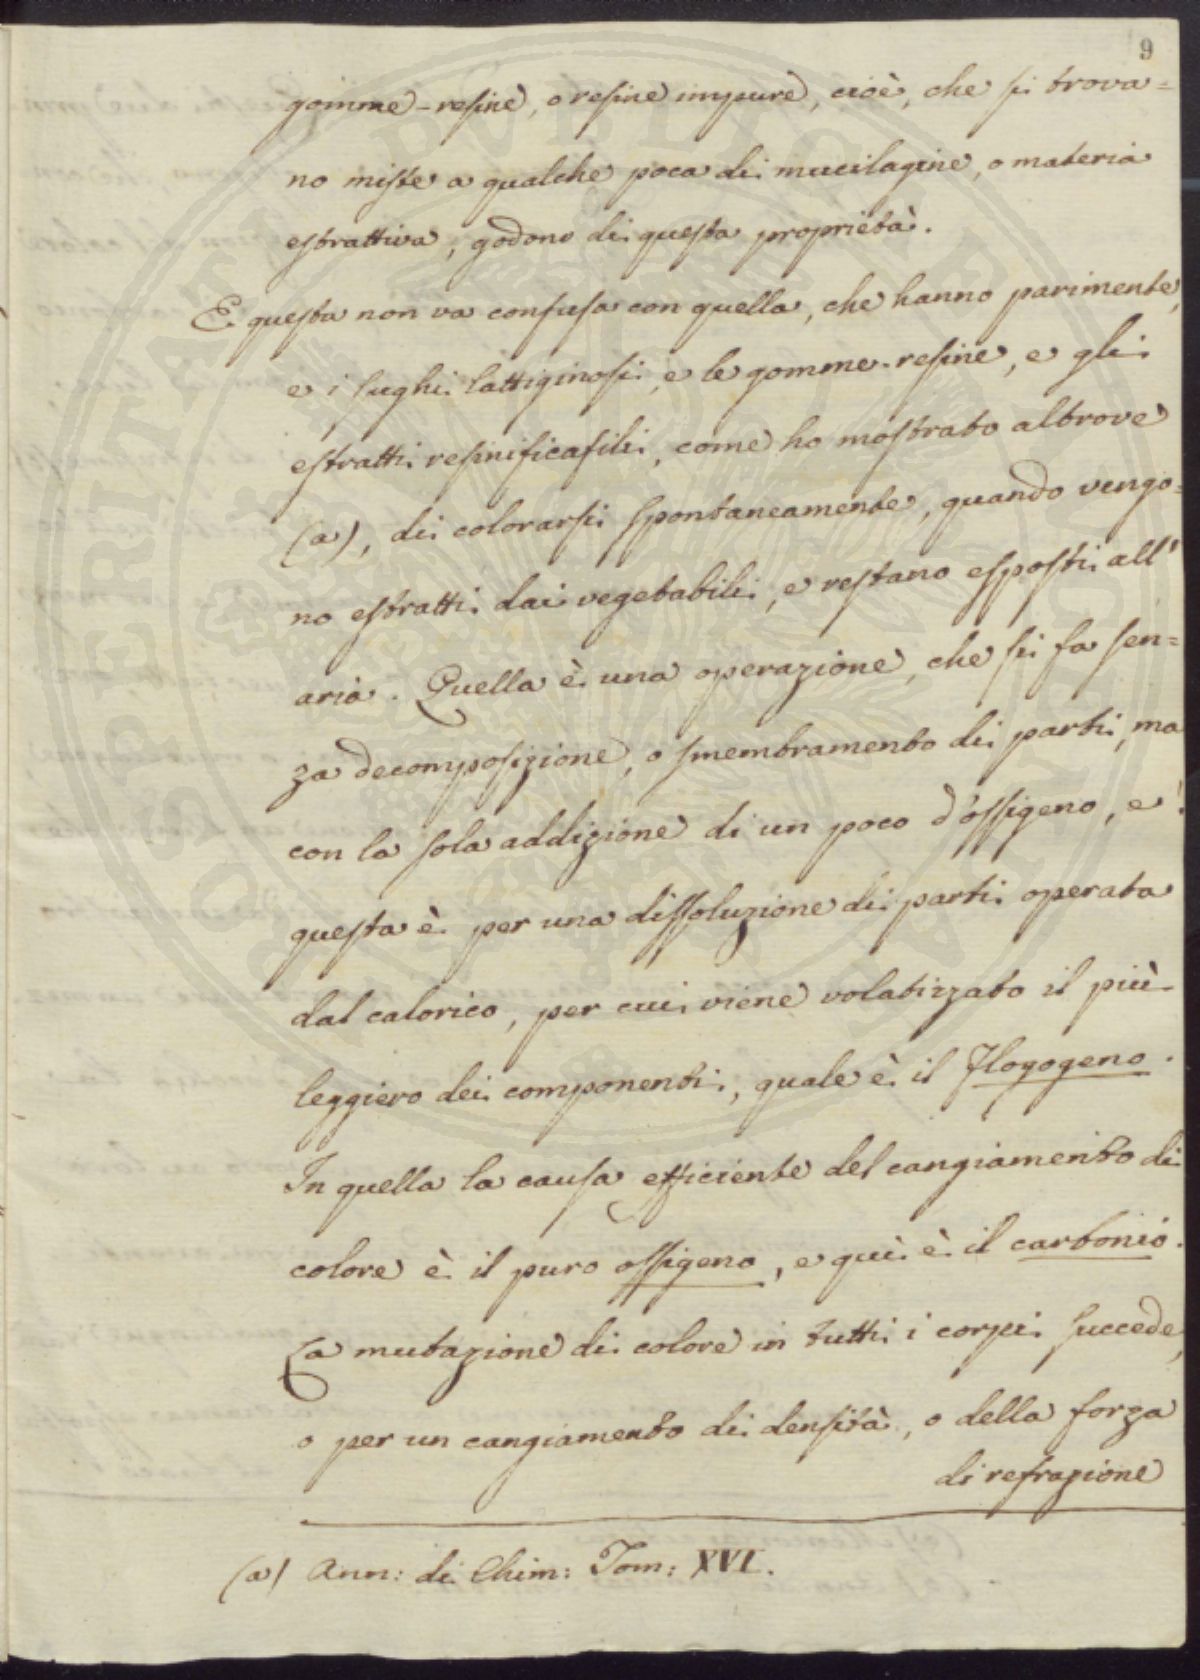 9
gomme-resine, o resine impure, cioè, che si trova=
no miste a qualche poca di mucilagine, o materia
estrattiva, godono di questa proprietà.
E questa non va confusa con quella, che hanno parimente,
e i sughi lattiginosi, e le gomme-resine, e gli
estratti resinificasili, come ho mostrato altrove
(a), di colorarsi spontaneamente, quando vengo=
no estratti dai vegetabili, e restano esposti all'
aria. Quella è una operazione, che si fa sen=
za decomposizione, o smembramento di parti, ma
con la sola addizione di un poco d'ossigeno, e
questa è per una dissoluzione di parti operata
dal calorico, per cui viene volatizzato il più
leggiero dei componenti, quale è il Flogogeno.
In quella la causa efficiente del cangiamento di
colore è il puro ossigeno, e quì è il carbonio.
La mutazione di colore in tutti i corpi succede,
o per un cangiamento di densità, o della forza
di refrazione
(a) Ann: di Chim: Tom: XVI.
PERITAT PVBLICAE
PROSPERITATI